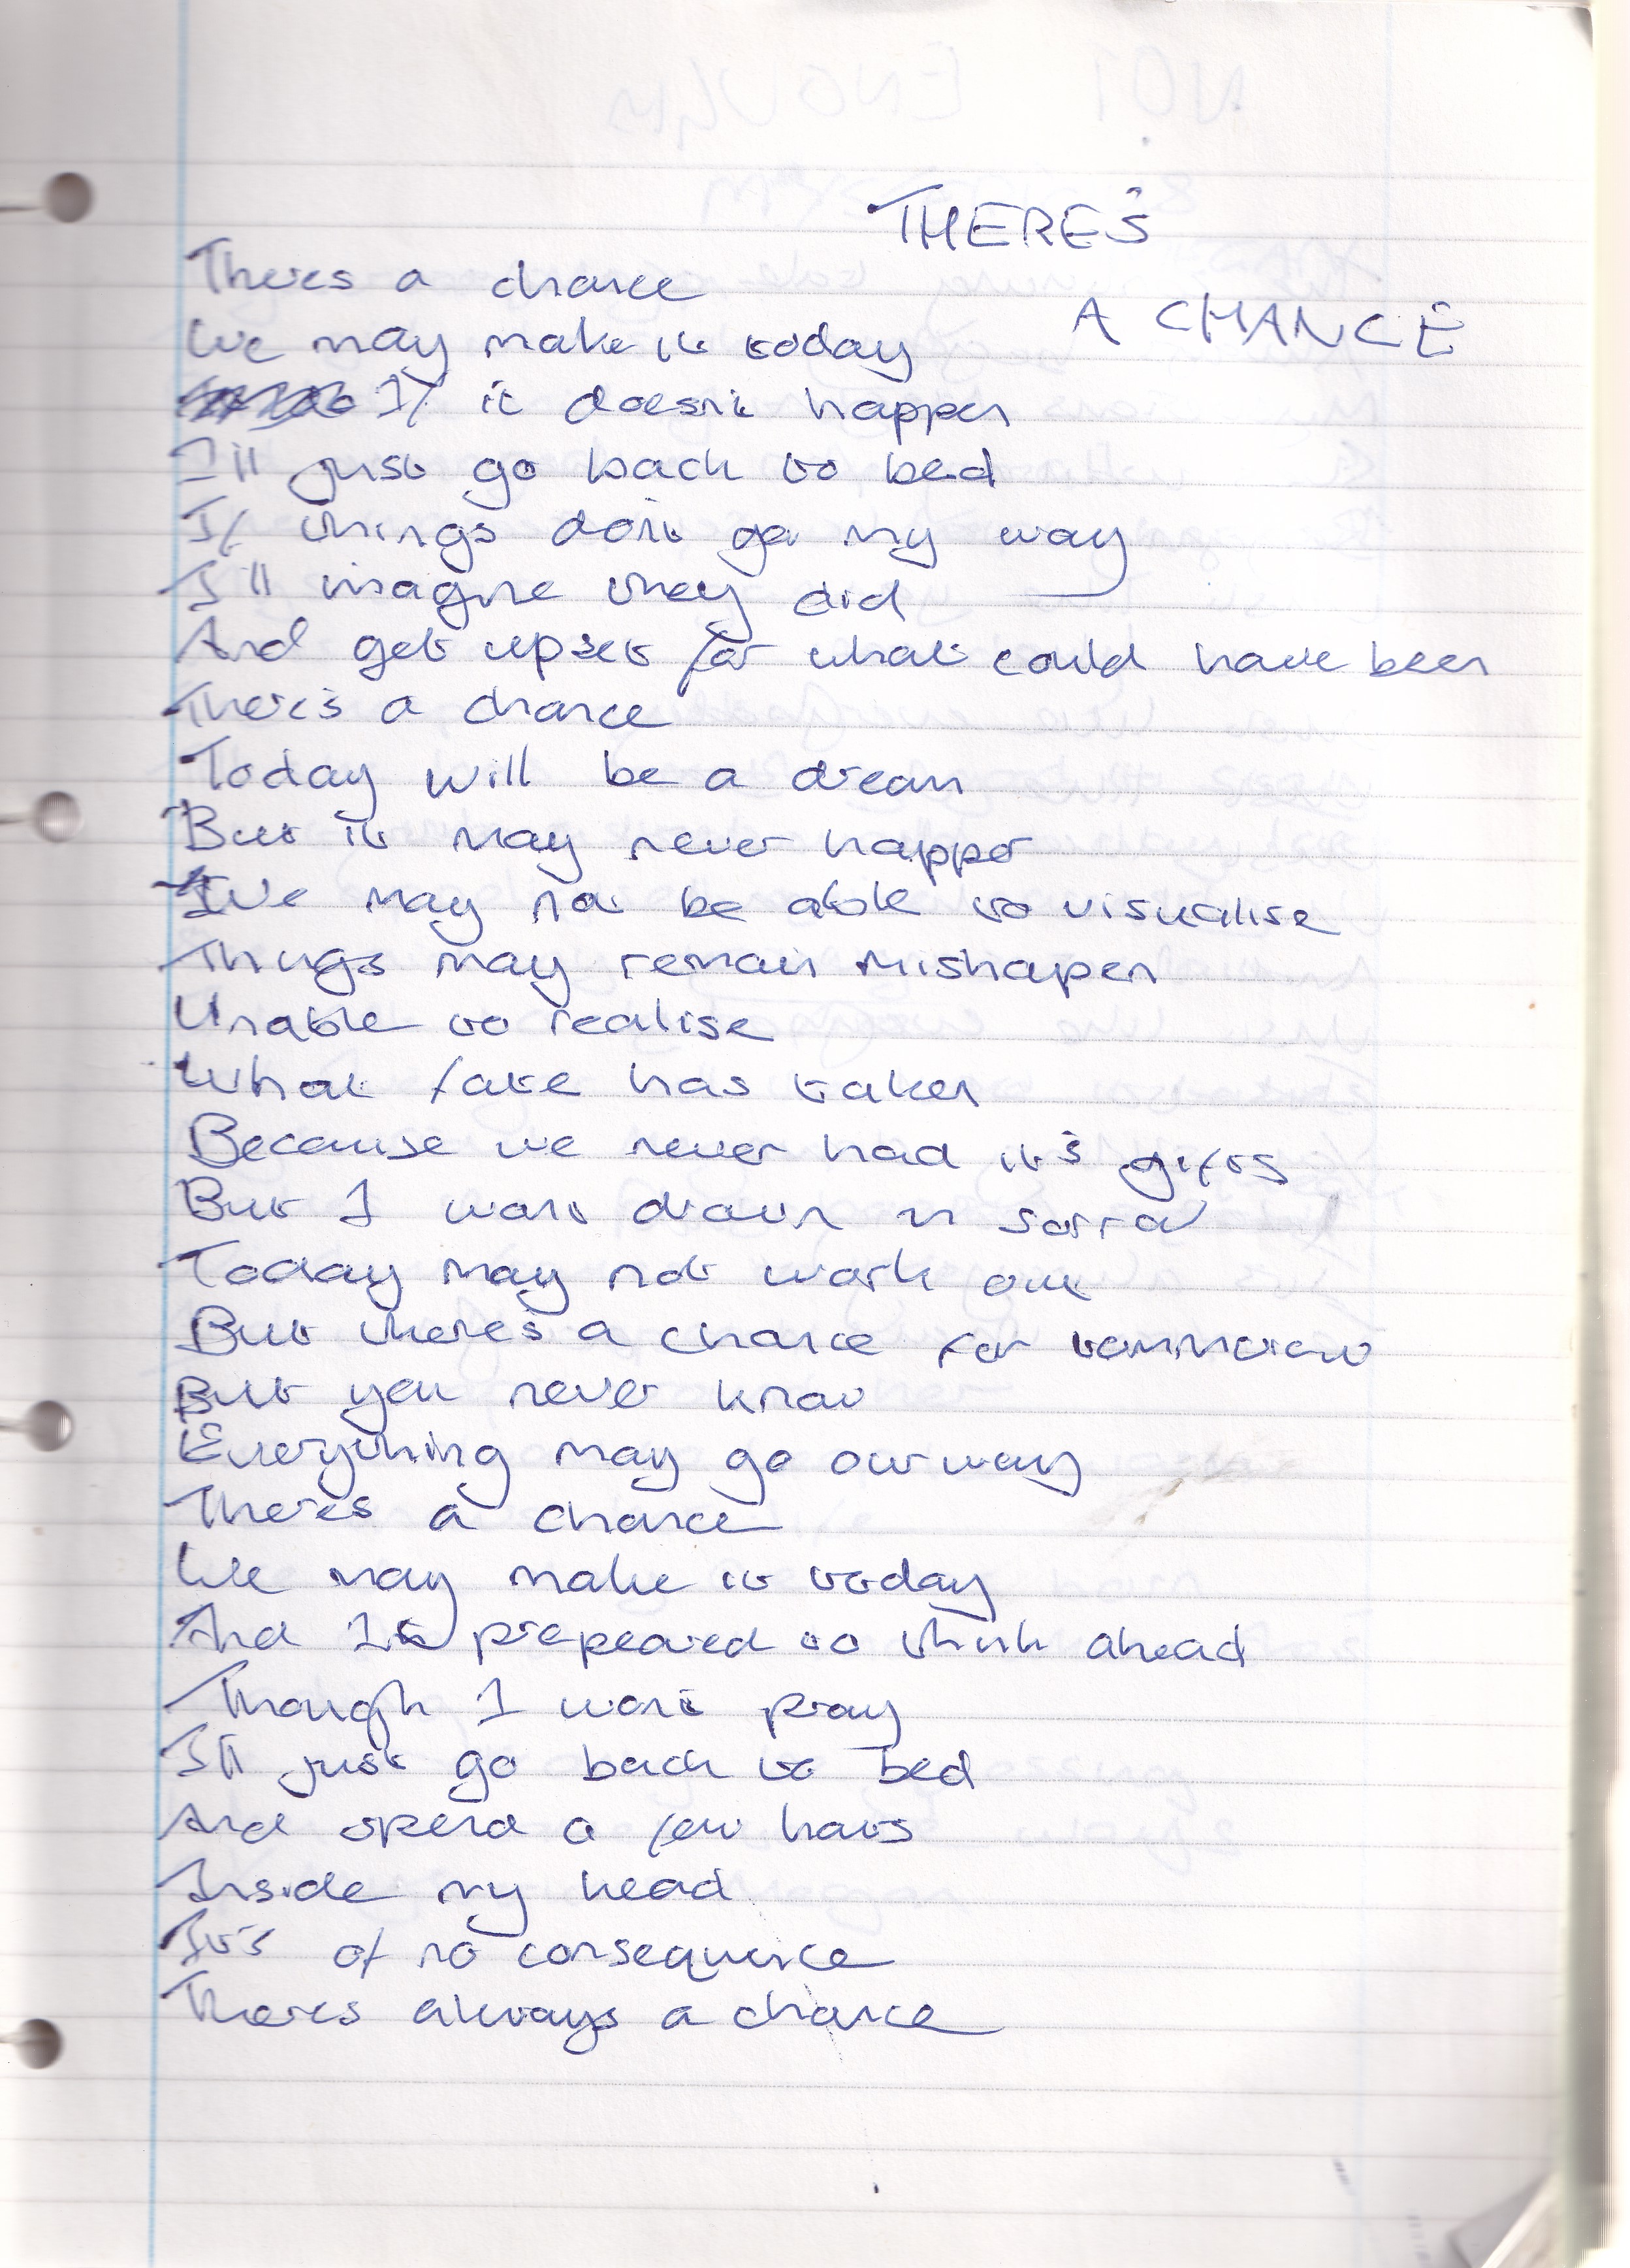 THERE'S
A CHANCE
There's a chance
We may make it today
If it doesn't happen
I'll just go back to bed
If things don't go my way
I'll imagine they did
And get upset for what could have been
There's a chance
Today will be a dream
But it may never happen
We may not be able to visualise
Things may remain mishapen
Unable to realise
What fate has taken
Because we never had it's gifts
But I wont drown in sorrow
Today may not work out
But there's a chance for tommorow
But you never know
Everything may go our way
There's a chance
We may make it today
And prepeared to think ahead
Though I won't pray
I'll just go back to bed
And spend a few hours
Inside my head
It's of no consequence
There's always a chance